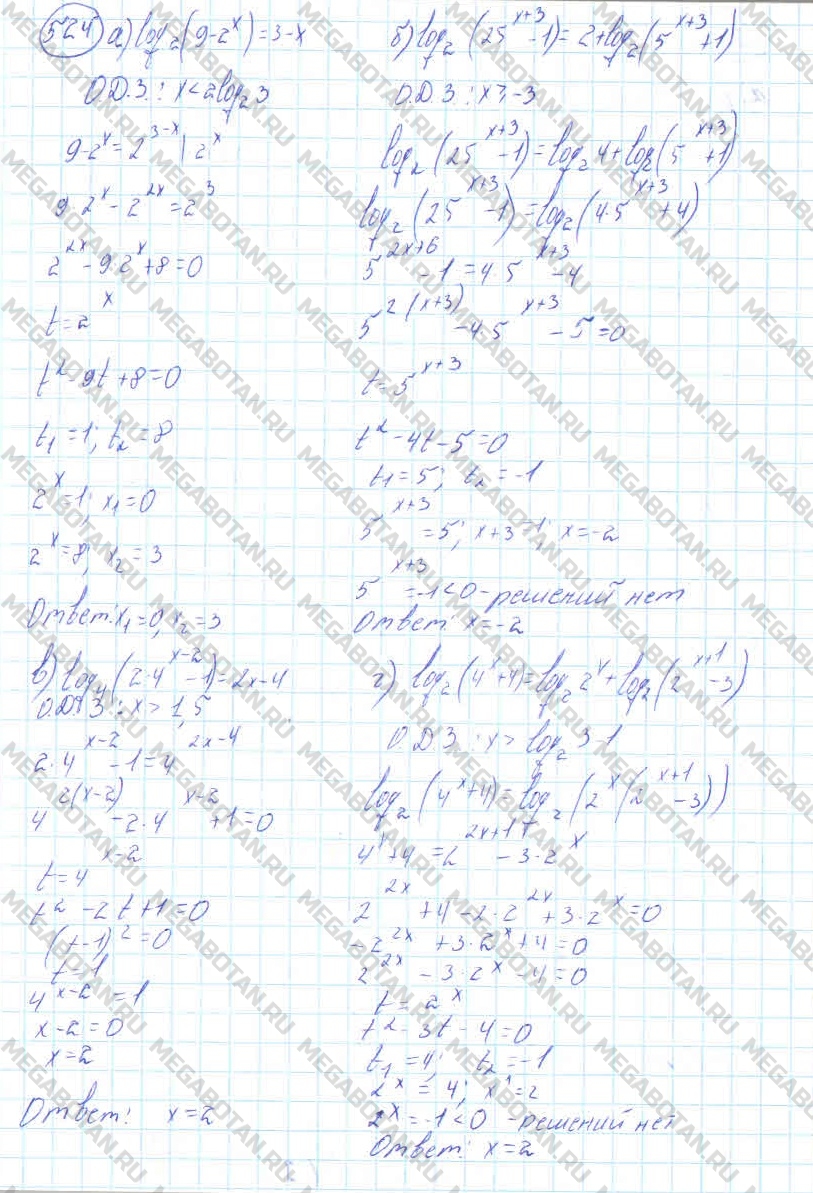 524 а) log₂(9-2^x)=3-x
О.Д.З.: x<2log₂3
9-2^x=2^(3-x) | 2^x
9·2^x-2^(2x)=2^3
2^(2x)-9·2^x+8=0
t=2^x
t²-9t+8=0
t₁=1; t₂=8
2^x=1; x₁=0
2^x=8; x₂=3
Ответ: x₁=0, x₂=3
б) log₂(25^(x+3)-1)=2+log₂(5^(x+3)+1)
О.Д.З: x>-3
log₂(25^(x+3)-1)=log₂4+log₂(5^(x+3)+1)
log₂(25^(x+3)-1)=log₂(4·5^(x+3)+4)
5^(2x+6)-1=4·5^(x+3)-4
5^(2(x+3))-4·5^(x+3)-5=0
t=5^(x+3)
t²-4t-5=0
t₁=5; t₂=-1
5^(x+3)=5; x+3=1; x=-2
5^(x+3)=-1<0-решений нет
Ответ: x=-2
в) log₄(2·4^(x-2)-1)=2x-4
О.Д.З: x>1,5
2·4^(x-2)-1=4^(2x-4)
4^(2(x-2))-2·4^(x-2)+1=0
t=4^(x-2)
t²-2t+1=0
(t-1)²=0
t=1
4^(x-2)=1
x-2=0
x=2
Ответ: x=2
г) log₂(4^x+4)=log₂2^x+log₂(2^(x+1)-3)
О.Д.З: x>log₂3-1
log₂(4^x+4)=log₂(2^x(2^(x+1)-3))
4^x+4=2^(2x+1)-3·2^x
2^(2x)+4-2·2^(2x)+3·2^x=0
-2^(2x)+3·2^x+4=0
2^(2x)-3·2^x-4=0
t=2^x
t²-3t-4=0
t₁=4; t₂=-1
2^x=4; x=2
2^x=-1<0 -решений нет
Ответ: x=2
MEGABOTAN.RU